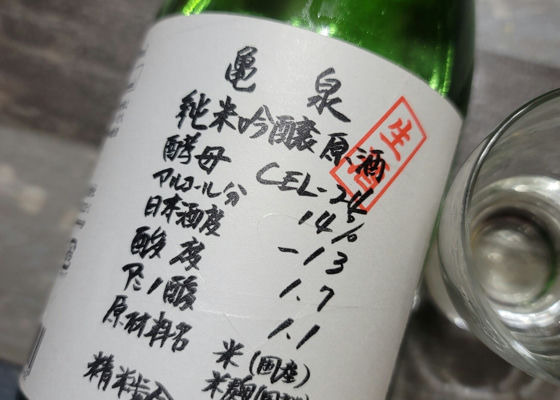 亀泉
純米吟醸原酒
生酒
酵母 CEL-24
アルコール分 14%
日本酒度 -13
酸度 1.7
アミノ酸 1.1
原材料名 米(国産)
米麹(国産
精米歩合